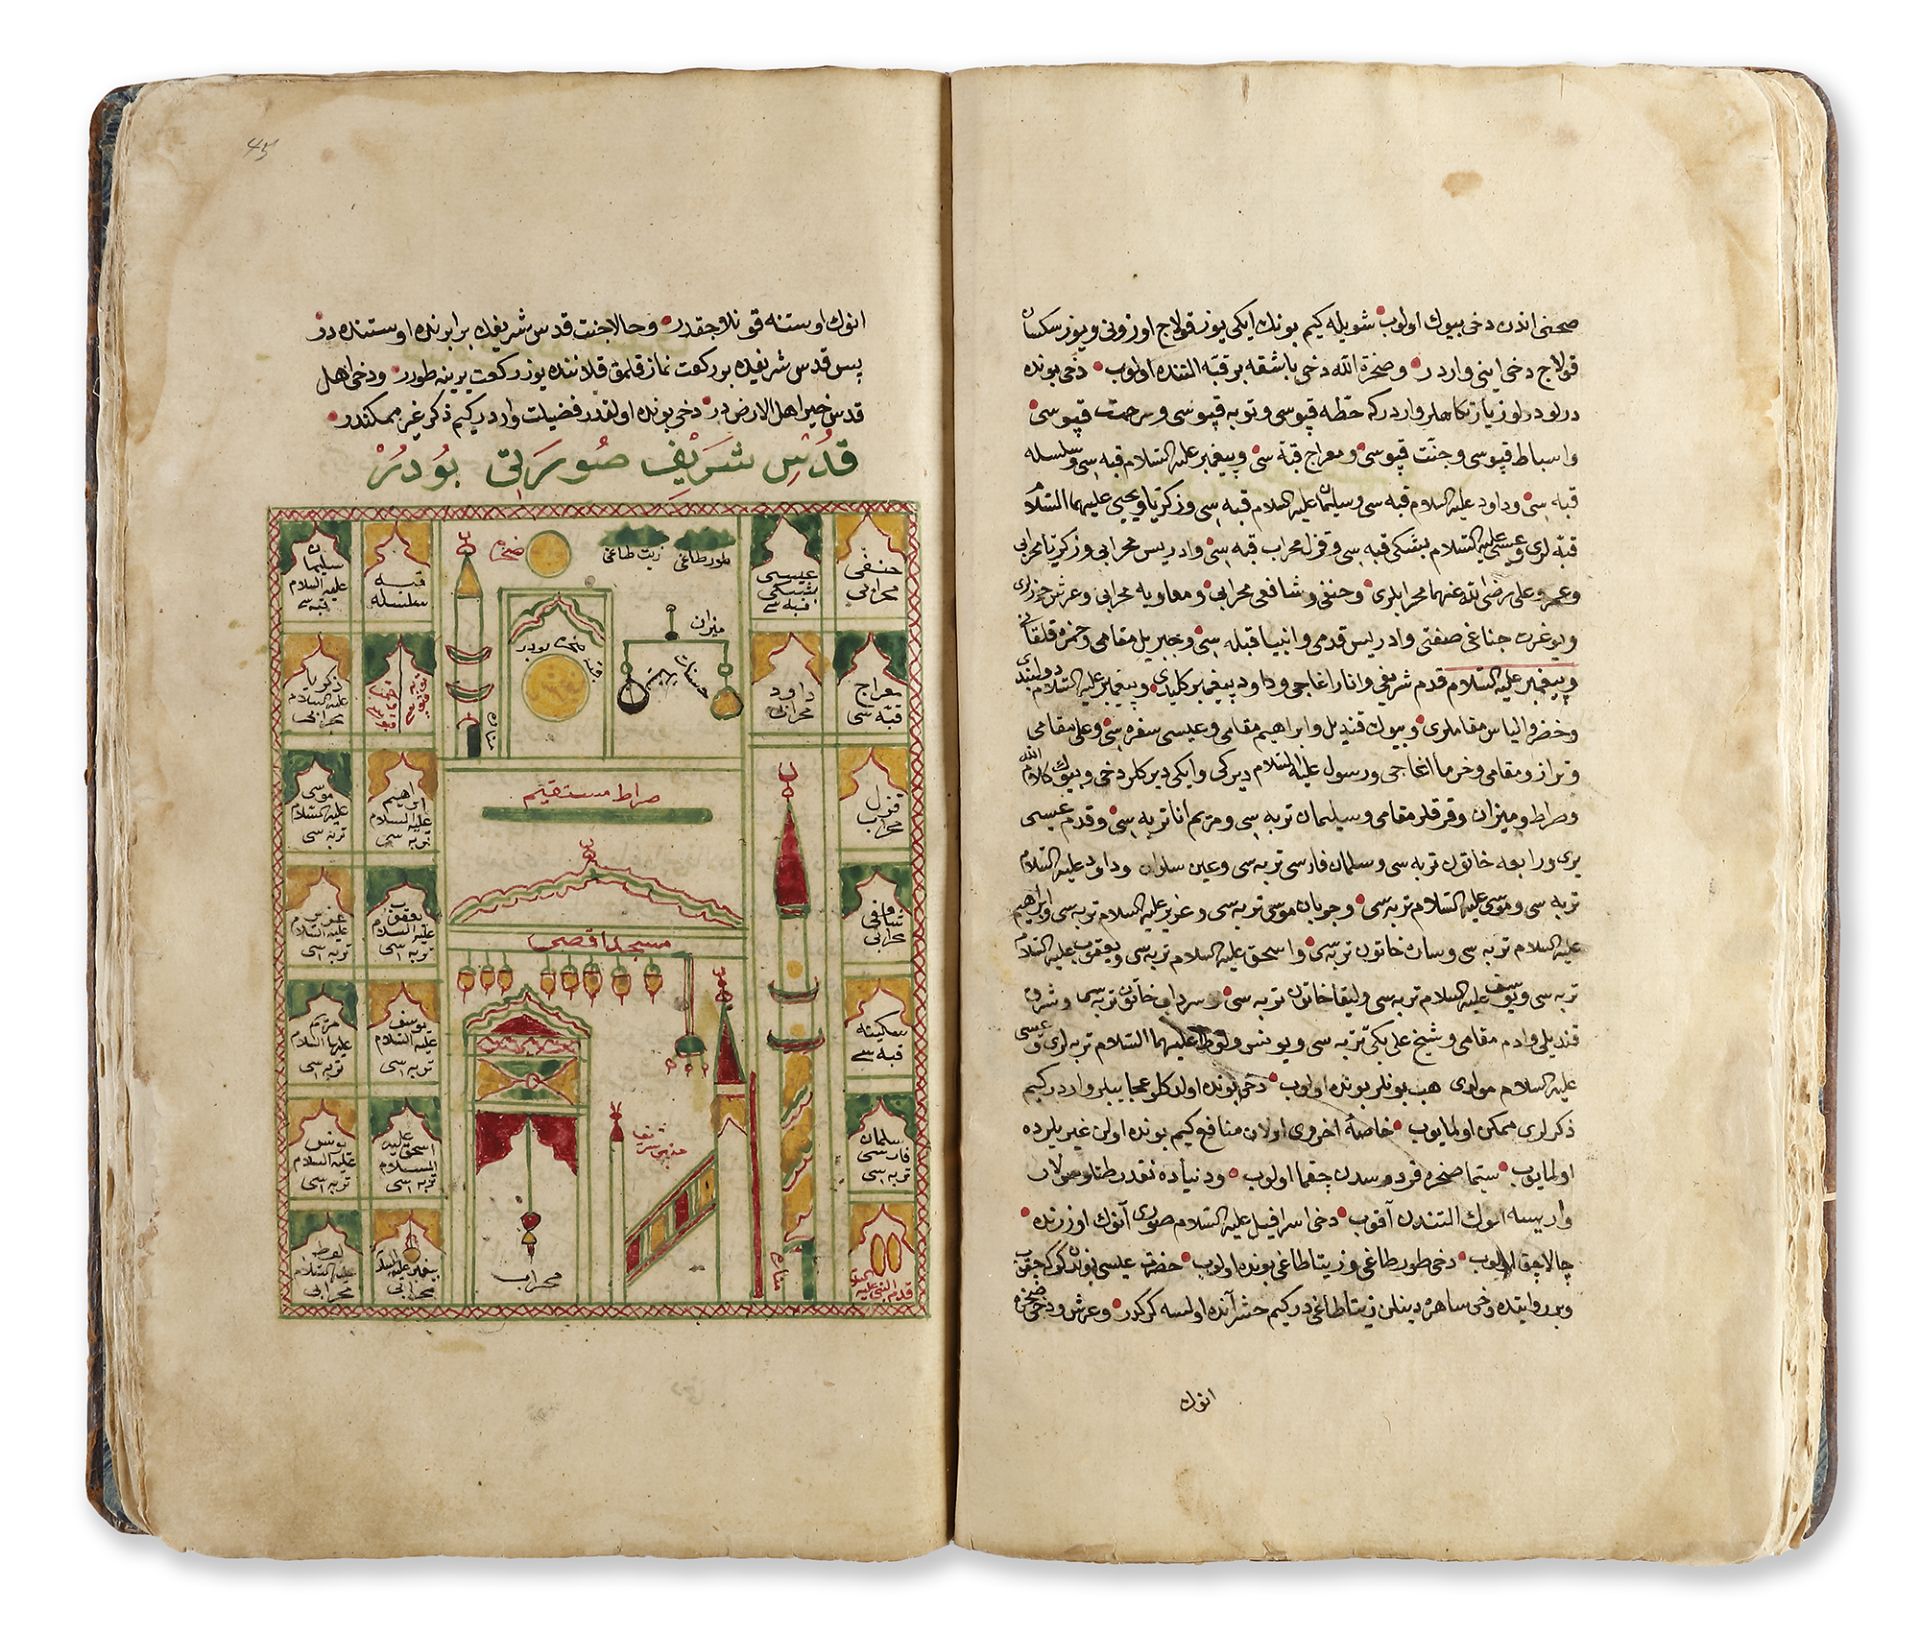 صحنى اندن دخى بيوك اولوب شويله كيم بونك ايكى يوز قولاج اوزونى ويوز سكسان
قولاج دخى اينى واردر وصخرة الله دخى باشقه بر قبه التنده اولوب دخى بونده
درلو درلو زيارتكاهلر واردر كه حطه قپوسى وتوبه قپوسى ورحمت قپوسى
واسباط قپوسى وجنت قپوسى ومعراج قبه سى وپيغمبر عليه السلام قبه سى وسلسله
قبه سى وداود عليه السلام قبه سى وسليمان عليه السلام قبه سى وزكريا ويحيى عليهما السلام
قبه لرى وعيسى عليه السلام بشكى قبه سى وقزل محراب قبه سى وادريس محرابى وزكريا محرابى
وعمر وعلى رضى الله عنهما محرابلرى وحنفى وشافعى محرابى ومعاويه محرابى وعرش
جناغى صفتى وادريس قدمى وانبيا قبله سى وجبريل مقامى وحمزه قلقانى
وپيغمبر عليه السلام قدم شريفى وانار اغاجى وداود پيغمبر كليدى وپيغمبر عليه السلام
وخضر والياس مقاملرى وبيوك قنديل وابراهيم مقامى وعيسى سفره سى وعلى مقامى
وترازو مقامى وخرما اغاجى ورسول عليه السلام ديركى وايكى ديركلر دخى وبيوك كلام الله
وصراط وميزان وقرقلر مقامى وسليمان تربه سى ومريم انا تربه سى وقدم عيسى
يرى ورابعه خاتون تربه سى وسلمان فارسى تربه سى وعين سلوان وداود عليه السلام
تربه سى وموسى عليه السلام تربه سى وجوبان موسى تربه سى وعزير عليه السلام تربه سى وابراهيم
عليه السلام تربه سى وساره خاتون تربه سى واسحق عليه السلام تربه سى ويعقوب عليه السلام
تربه سى ويوسف عليه السلام تربه سى وليقا خاتون تربه سى خاتون تربه سى
قنديلى وادم مقامى وشيخ على بكى تربه سى ويونس ولوط عليهما السلام تربه لرى وعيسى
عليه السلام مولدى هب بونلر بونده اولوب دخى بونده اولن كلو عجايبلر واردر كيم
ذكرلرى ممكن اولمايوب خاصة اخروى اولان منافع كيم بونده اولن غير يلرده
اولمايوب سيما صخره قردوسدن چقما اولوب ودنياده نقدر طتلو صولر
واريسه انوك التندن آقوب دخى اسرافيل عليه السلام صورى آنوك اوزرنده
چالاجق اولوب دخى طور طاغى وزيتا طاغى بونده اولوب حضرت عيسى بوندن كوكه چقوب
وبر روايتده وخى ساهره دينلن زيتا طاغى در كيم حشر آنده اولسه كركدر وعرش ودخى صخره
انوك
انوك اوستنه قونلاجقدر وحالا جنت قدس شريفك برابرنده اوستنده در
پس قدس شريفده بر ركعت نماز قلمق قلاننده يوز ركعت يرينه طورر ودخى اهل
قدس خير اهل الارض در دخى بونده اولقدر فضيلت واردر كيم ذكر غير ممكندر
قدس شريف صورتى بودر
حنفى محرابى
عيسى بشكى قبه سى
طور طاغى
زيت طاغى
صخره
قبه سلسله
سليمان عليه السلام قبه سى
معراج قبه سى
داود محرابى
ميزان
حسنات
مناره
زكريا عليه السلام محرابى
قزل محراب
صراط مستقيم
ابراهيم عليه السلام تربه سى
موسى عليه السلام تربه سى
شافعى محرابى
مسجد اقصى
يعقوب عليه السلام تربه سى
عزير عليه السلام تربه سى
سكينه قبه سى
يوسف عليه السلام تربه سى
مريم عليها السلام تربه سى
سلمان فارسى تربه سى
منبر شريف
اسحق عليه السلام تربه سى
يونس عليه السلام تربه سى
قدم النبى عليه السلام
مناره
محراب
پيغمبر عليه السلام محرابى
لوط عليه السلام محرابى